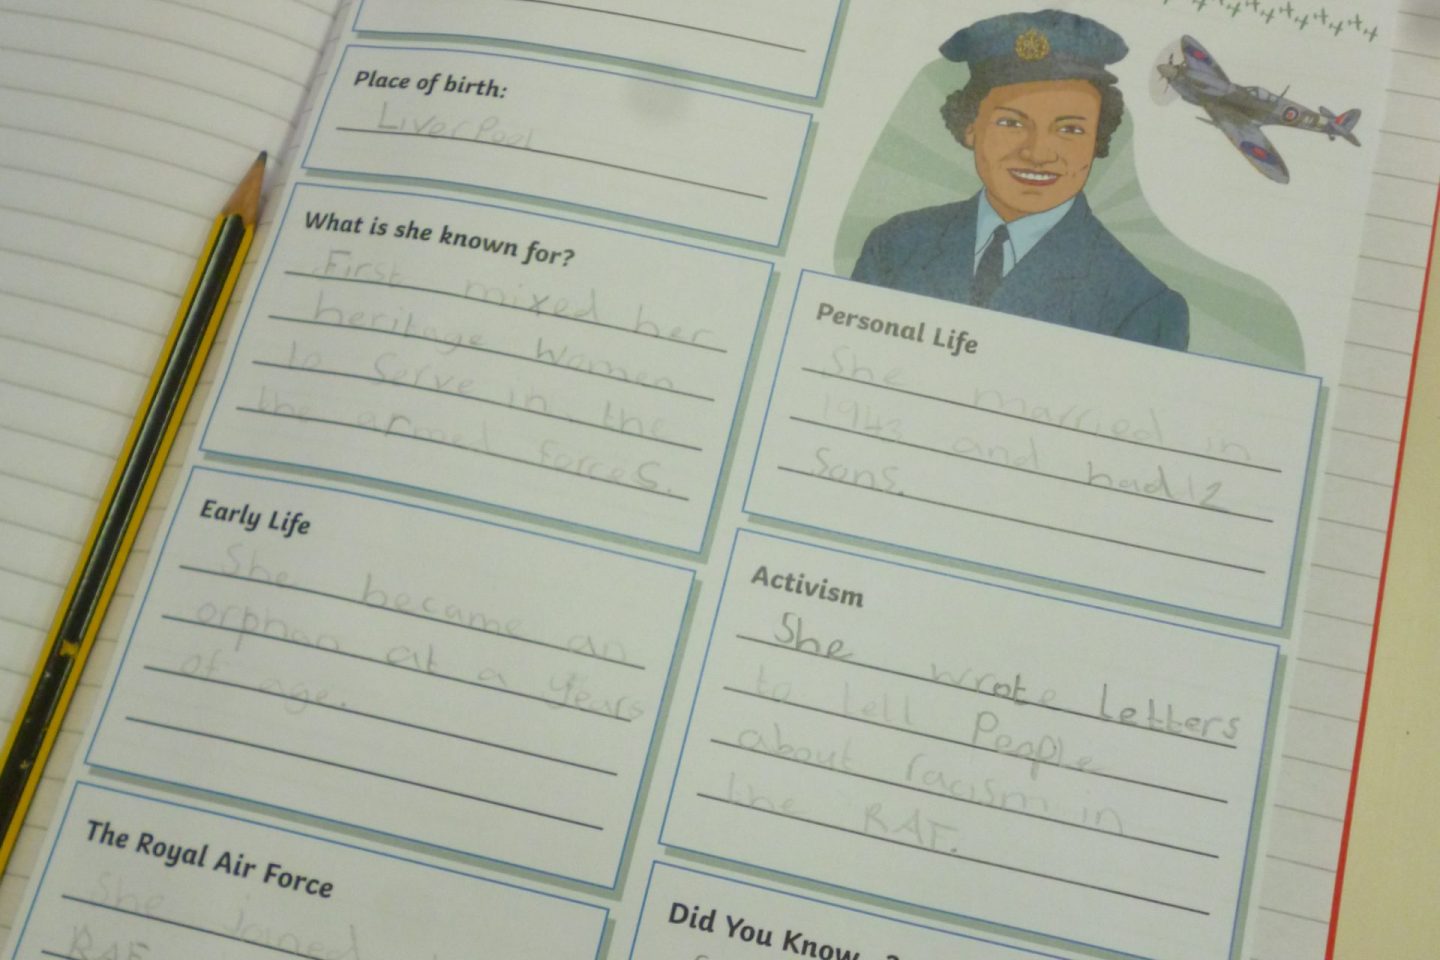 Place of birth:
Liverpool
What is she known for?
First mixed her
heritage women
to serve in the
the armed forces.
Early Life
She became an
orphan at a years
of age.
The Royal Air Force
She joined
RAF
Personal Life
She married in
1943 and had 2
Sons.
Activism
She wrote Letters
to tell People
about racism in
the RAF.
Did You Know